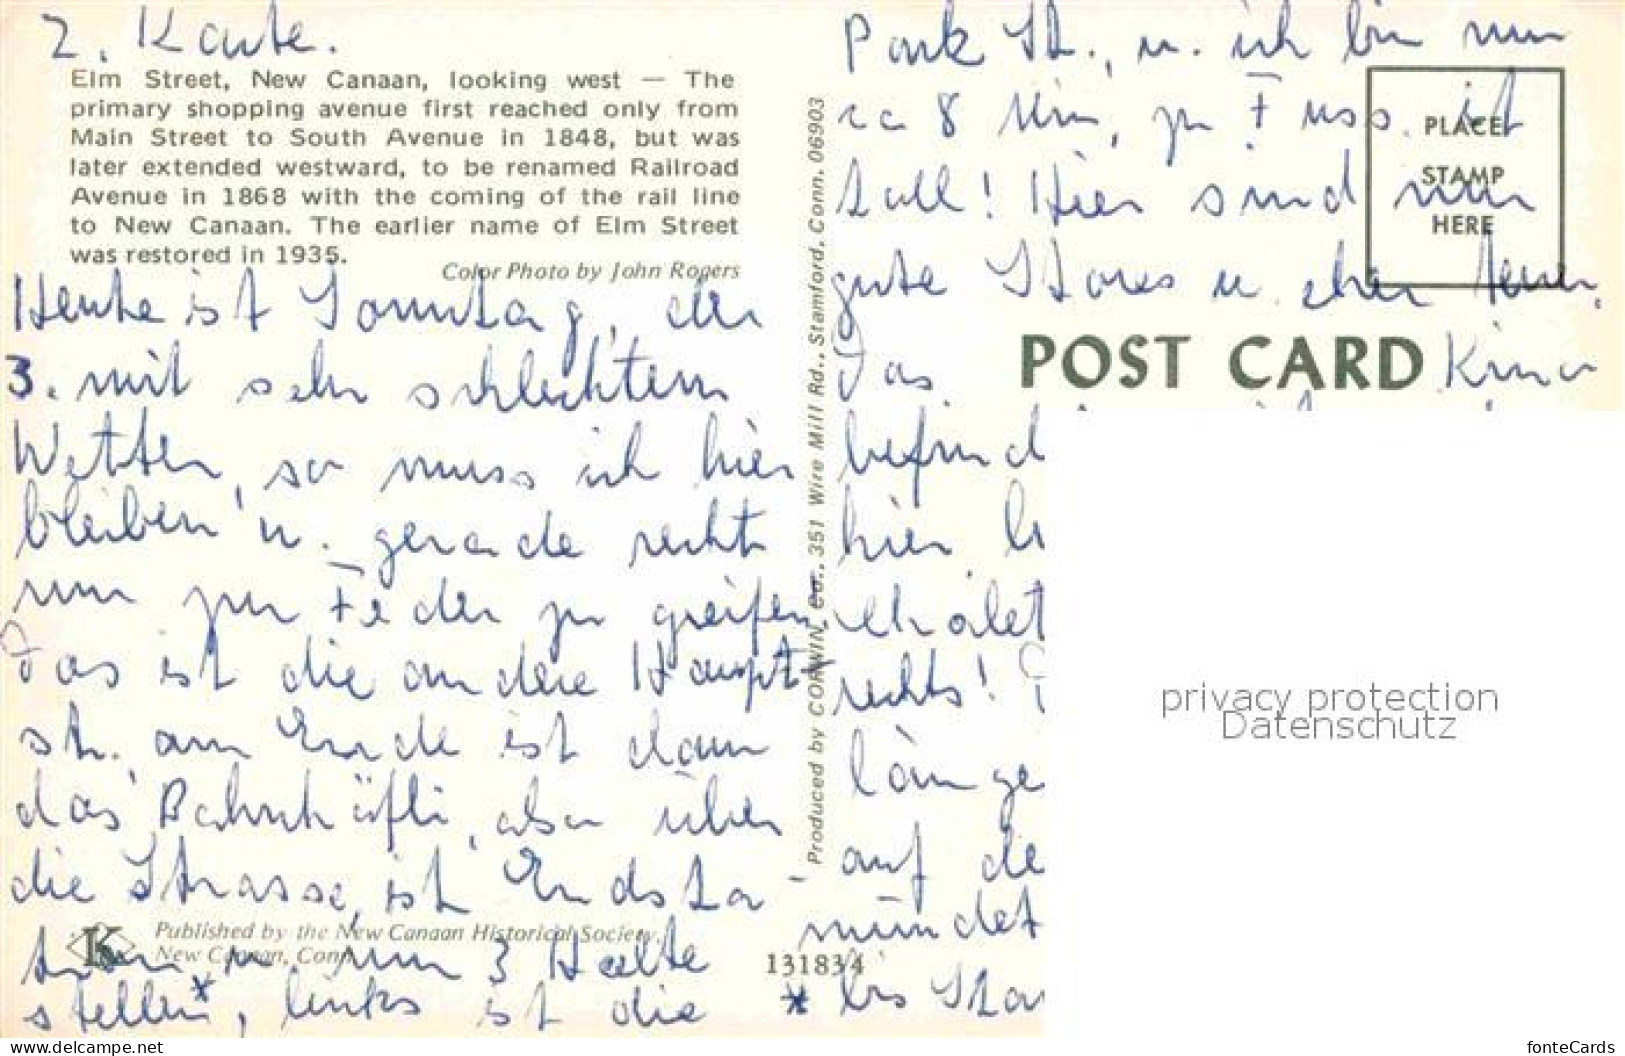 2. Karte.
Elm Street, New Canaan, looking west — The
primary shopping avenue first reached only from
Main Street to South Avenue in 1848, but was
later extended westward, to be renamed Railroad
Avenue in 1868 with the coming of the rail line
to New Canaan. The earlier name of Elm Street
was restored in 1935.
Color Photo by John Rogers
Heute ist Sonntag, der
3. mit sehr schlechtem
Wetter, so muss ich hier
bleiben u. gerade recht
um zur Feder zu greifen.
Das ist die andere Haupt-
str. am Ende ist dann
das Bahnhöfli, also über
die Strasse, ist Endsta-
tion u. nur 3 Halte
stellen*, links ist die
Published by the New Canaan Historical Society,
New Canaan, Conn.
131834
Produced by CORWIN Co., 351 Wire Mill Rd., Stamford, Conn. 06903
Park St., u. ich bin nun
ca 8 Min, zu Fuss. ist
toll! Hier sind nur
gute Stores u. eher teuer.
Das Kino
befind
hier
rechts!
länge
auf de
mündet
* bis Sta
PLACE
STAMP
HERE
POST CARD
privacy protection
Datenschutz
www.delcampe.net
fonteCards